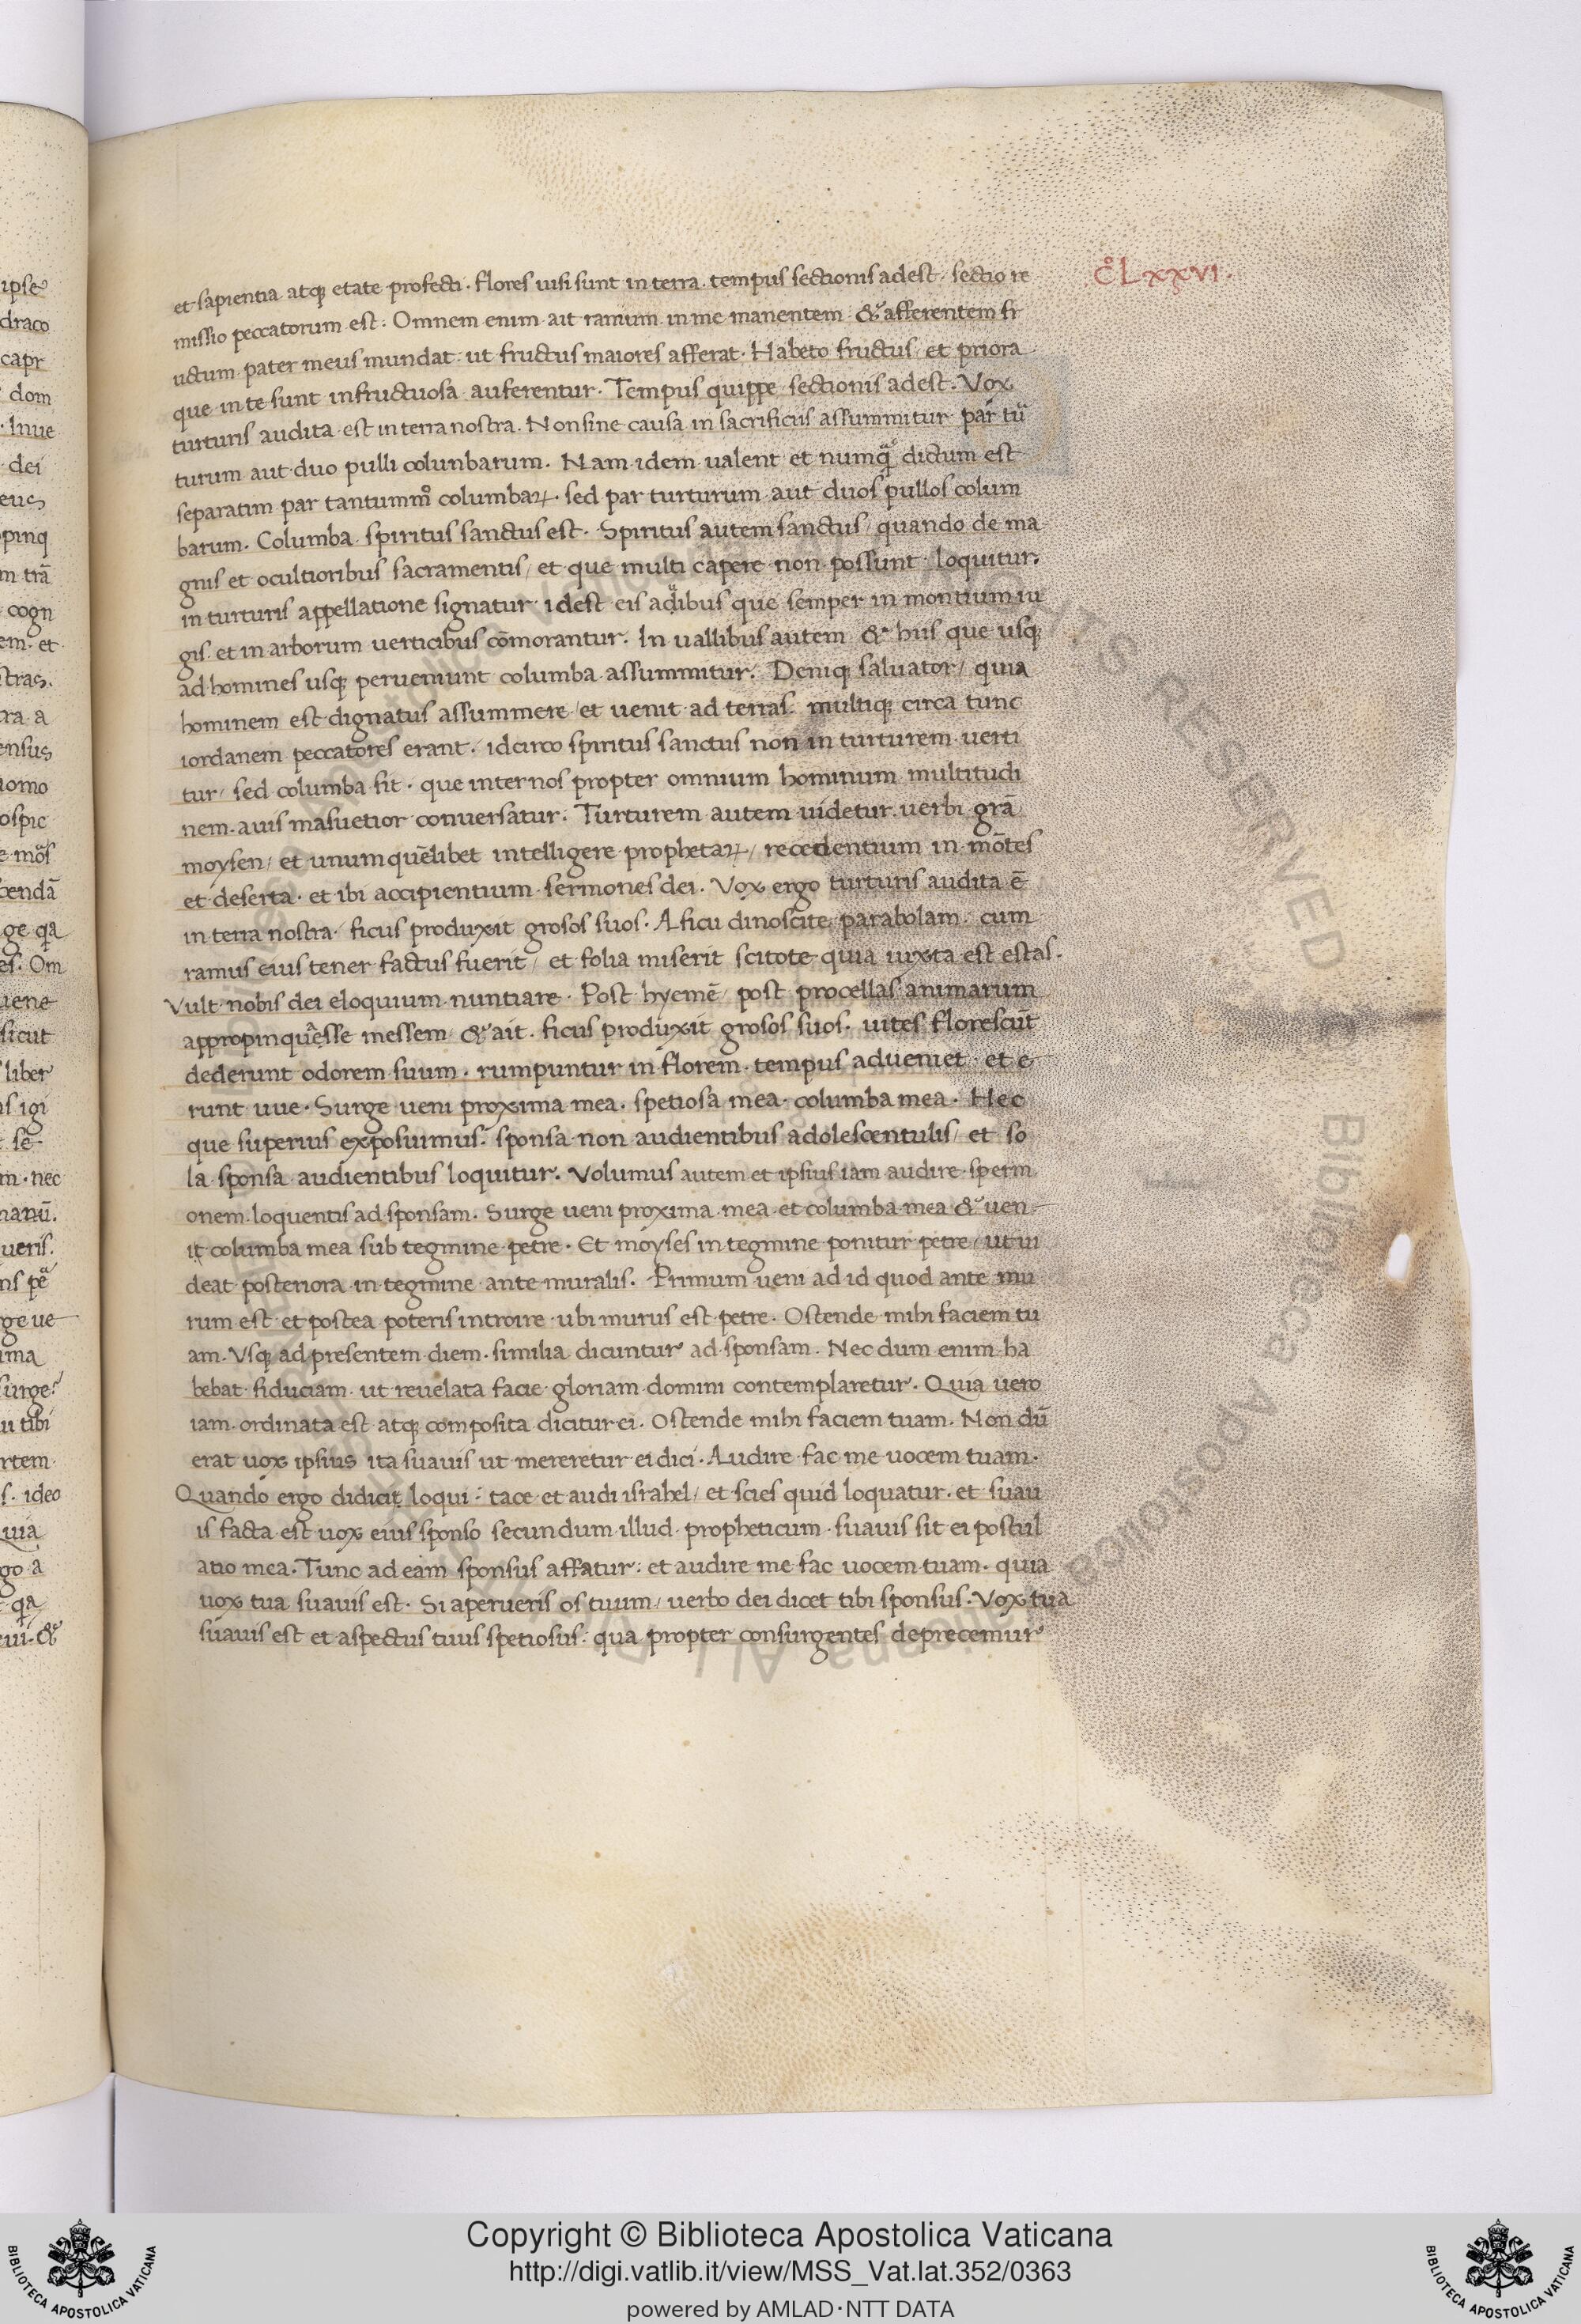 cͦLxxvi.
et sapientia atqꝫ etate profecti. flores uisi sunt in terra. tempus sectionis adest. sectio re
missio peccatorum est. Omnem enim ait ramum in me manentem & afferentem fr
uctum pater meus mundat. ut fructus maiores afferat. Habeto fructus et priora
que in te sunt infructuosa auferentur. Tempus quippe sectionis adest. Vox
turturis audita est in terra nostra. Non sine causa in sacrificiis assummitur par tu
turum aut duo pulli colunbarum. Nam idem ualent et numq̃ dictum est
separatim par tantummͦ columbaꝝ. sed par turturum aut duos pullos colum
barum. Columba spiritus sanctus est. Spiritus autem sanctus quando de ma
gnis et ocultioribus sacramentis / et que multi capere non possunt loquitur.
in turturis appellatione signatur idest eis auibus que semper in montium iu
gis et in arborum uerticibus cōmorantur. In uallibus autem & hiis que usqꝫ
ad homines usqꝫ perueniunt columba assummitur. Deniqꝫ saluator / quia
hominem est dignatus assummere / et uenit ad terras. multiqꝫ circa tunc
iordanem peccatores erant. idcirco spiritus sanctus non in turturem uerti
tur / sed columba fit. que inter nos propter omnium hominum multitudi
nem auis masuetior conuersatur. Turturem autem uidetur uerbi grā
moysen / et unumquēlibet intelligere prophetaꝝ / recedentium in mōtes
et deserta. et ibi accipientium sermones dei. Vox ergo turturis audita ē
in terra nostra. ficus produxit grosos suos. A ficu dinoscite parabolam. cum
ramus eius tener factus fuerit / et folia miserit scitote quia iuxta est estas.
Vult nobis dei eloquium nuntiare. Post hyemē / post procellas animarum
appropinquēsse messem & ait. ficus produxit grosos suos. uites florescūt
dederunt odorem suum. rumpuntur in florem. tempus adueniet et e
runt uue. Surge ueni proxima mea. spetiosa mea columba mea. Hec
que superius exposuimus. sponsa non audientibus adolescentulis / et so
la sponsa audientibus loquitur. Volumus autem et ipsius iam audire sperm
onem loquentis ad sponsam. Surge ueni proxima mea et columba mea & uen
it columba mea sub tegmine petre. Et moyses in tegmine ponitur petre / ut ui
deat posteriora in tegmine ante muralis. Primum ueni ad id quod ante mu
rum est et postea poteris introire ubi murus est petre. Ostende mihi faciem tu
am. Vsqꝫ ad presentem diem. similia dicuntur ad sponsam. Nec dum enim ha
bebat fiduciam ut reuelata facie gloriam domini contemplaretur. Quia uero
iam ordinata est atqꝫ composita dicitur ei. Ostende mihi faciem tuam. Non dū
erat uox ipsius ita suauis ut mereretur ei dici. Audire fac me uocem tuam.
Quando ergo didicit loqui. tace et audi israhel / et scies quid loquatur. et suau
is facta est uox eius sponso secundum illud propheticum. suauis sit ei postul
atio mea. Tunc ad eam sponsus affatur. et audire me fac uocem tuam. quia
uox tua suauis est. Si aperueris os tuum / uerbo dei dicet tibi sponsus. Vox tua
suauis est et aspectus tuus spetiosus. qua propter consurgentes deprecemur
Copyright © Biblioteca Apostolica Vaticana
http://digi.vatlib.it/view/MSS_Vat.lat.352/0363
powered by AMLAD·NTT DATA
BIBLIOTECA APOSTOLICA VATICANA
BIBLIOTECA APOSTOLICA VATICANA